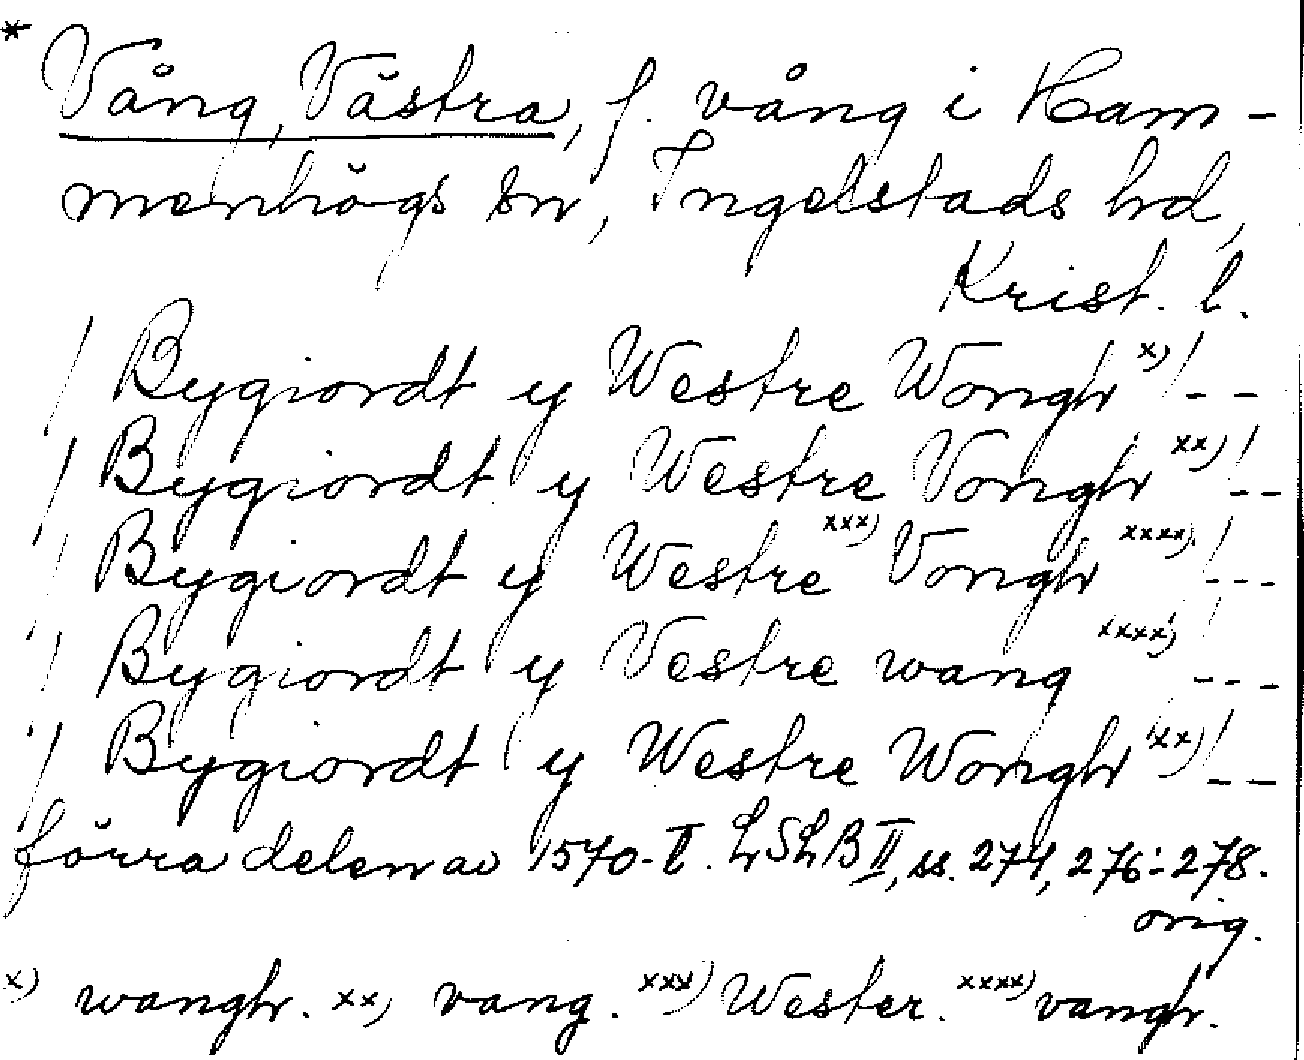 * Vång, Västra, f. vång i Ham-
menhögs sn, Ingelstads hd,
Krist. l.
/ Bygiordt y Westre Wongh x) / - -
/ Bygiordt y Westre Vongh xx) / - -
/ Bygiordt y Westre xxx) Vongh xxxx) / - - -
/ Bygiordt y Vestre wang xxxx) / - - -
/ Bygiordt y Westre Wongh xx) / - -
förra delen av 1570-t. LSLB II, ss. 274, 276-278.
orig.
x) wangh. xx) vang. xxx) Wester. xxxx) vangh.